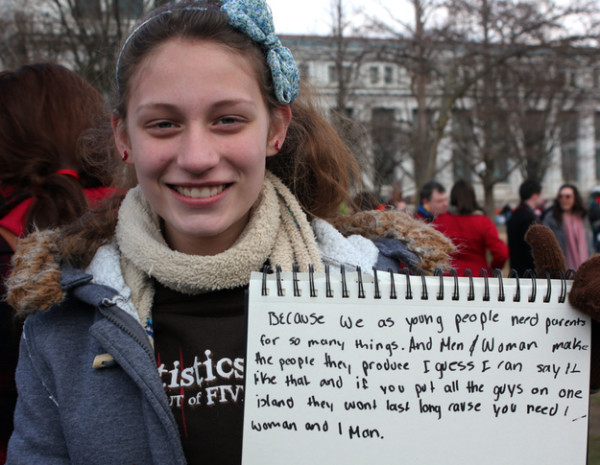 tistics
UT OF FIV
Because we as young people need parents
for so many things. And Men / Woman make
the people they produce I guess I can say it
like that and if you put all the guys on one
island they wont last long cause you need 1
woman and 1 Man.